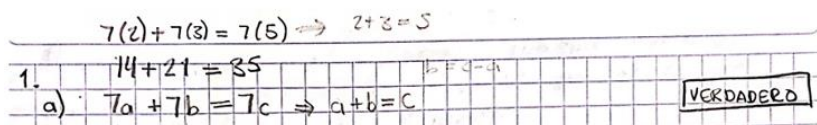 7(2)+7(3) = 7(5) ⇒ 2+3=5
1. 14+21 = 35 b = c-a
a) 7a +7b = 7c ⇒ a+b=c VERDADERO